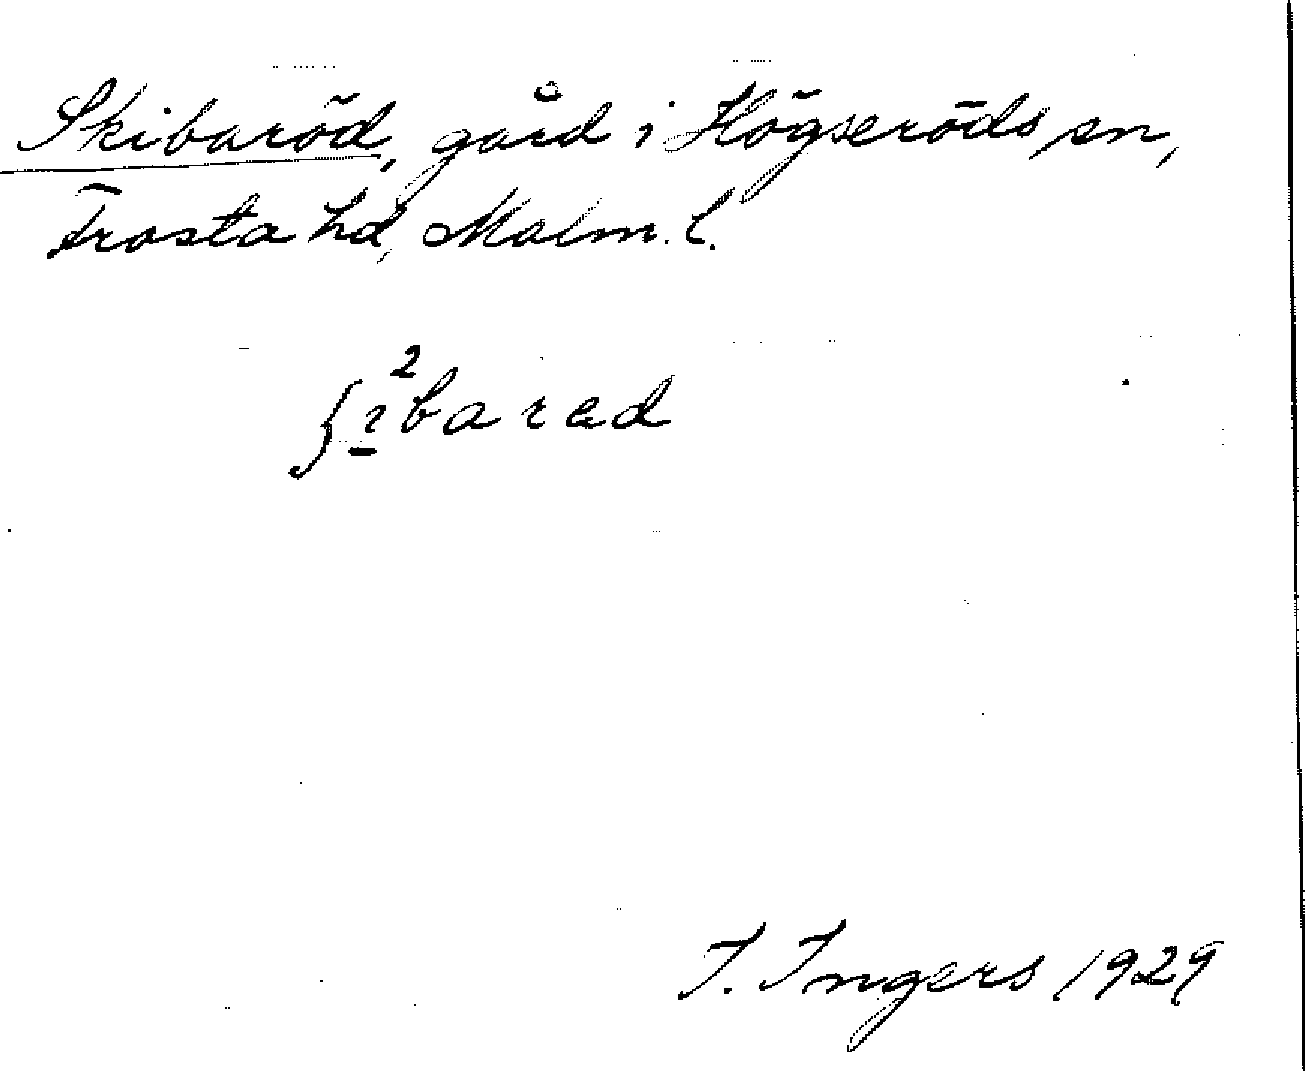 Skibaröd, gård i Högseröds sn,
Frosta hd, Malm. l.
ʃɪ²barəd
I. Ingers 1929